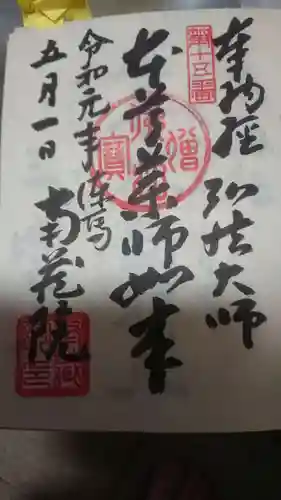 奉納経 弘法大師
第十五番
本尊薬師如来
令和元年
五月一日
南蔵院